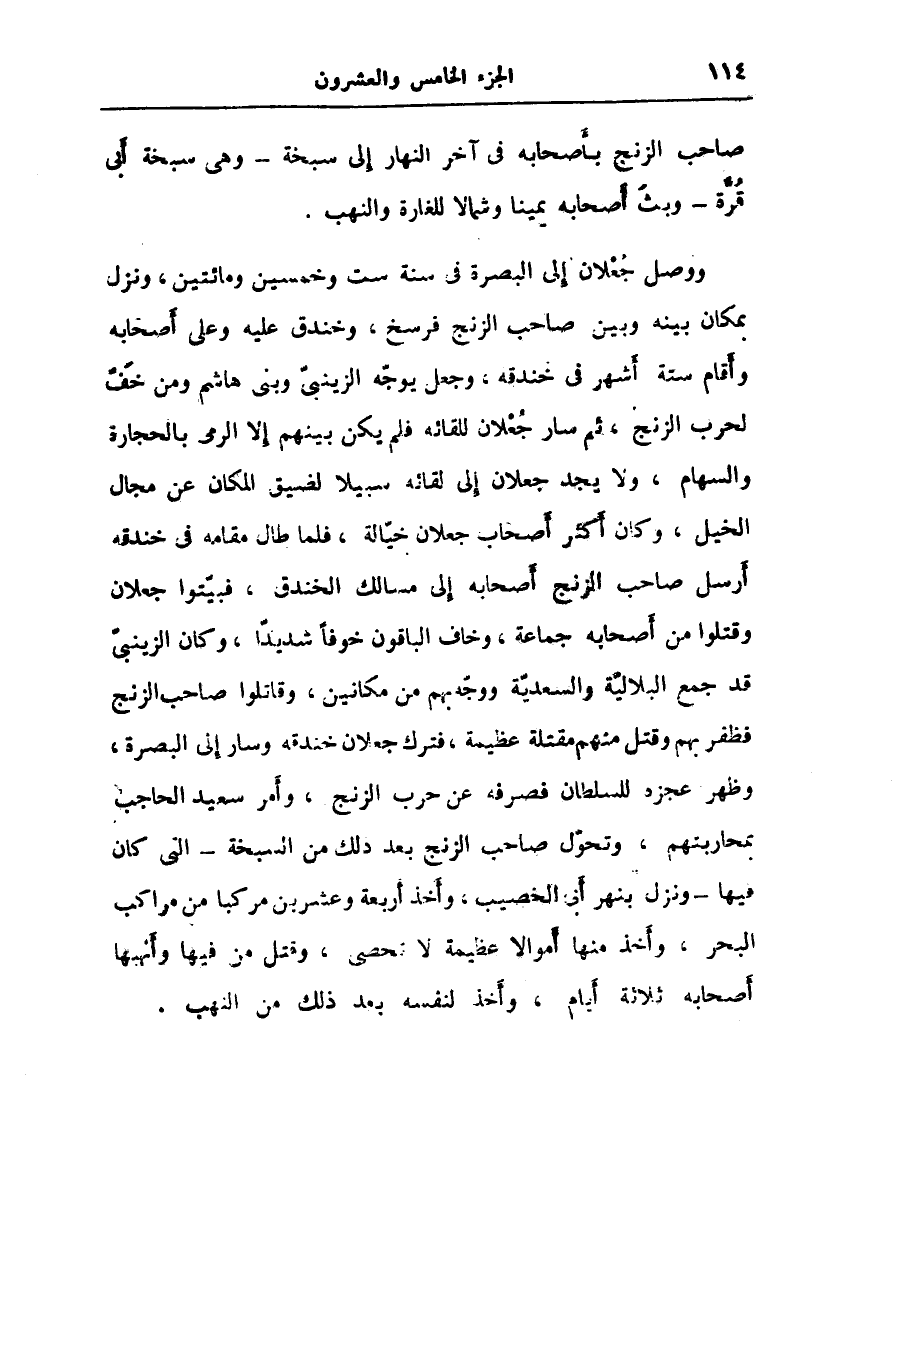 ١١٤
الجزء الخامس والعشرون
صاحب الزنج بأصحابه فى آخر النهار إلى سبخة – وهى سبخة أبى
قُرَّة – وبثّ أصحابه يمينا وشمالا للغارة والنهب .
ووصل جُعْلان إلى البصرة فى سنة ست وخمسين ومائتين ، ونزل
بمكان بينه وبين صاحب الزنج فرسخ ، وخندق عليه وعلى أصحابه
وأقام ستة أشهر فى خندقه ، وجعل يوجّه الزينبىّ وبنى هاشم ومن خفّ
لحرب الزنج ، ثم سار جُعْلان للقائه فلم يكن بينهم إلا الرمى بالحجارة
والسهام ، ولا يجد جعلان إلى لقائه سبيلا لضيق المكان عن مجال
الخيل ، وكان أكثر أصحاب جعلان خيّالة ، فلما طال مقامه فى خندقه
أرسل صاحب الزنج أصحابه إلى مسالك الخندق ، فبيّتوا جعلان
وقتلوا من أصحابه جماعة ، وخاف الباقون خوفاً شديدًا ، وكان الزينبىّ
قد جمع البلاليّة والسعديّة ووجّه بهم من مكانين ، وقاتلوا صاحب الزنج
فظفر بهم وقتل منهم مقتلة عظيمة ، فترك جعلان خندقه وسار إلى البصرة ،
وظهر عجزه للسلطان فصرفه عن حرب الزنج ، وأمر سعيد الحاجب
بمحاربتهم ، وتحوّل صاحب الزنج بعد ذلك من السبخة – التى كان
فيها – ونزل بنهر أبى الخصيب ، وأخذ أربعة وعشرين مركبا من مراكب
البحر ، وأخذ منها أموالا عظيمة لا تحصى ، وقتل من فيها وأنهبها
أصحابه ثلاثة أيام ، وأخذ لنفسه بعد ذلك من النهب .